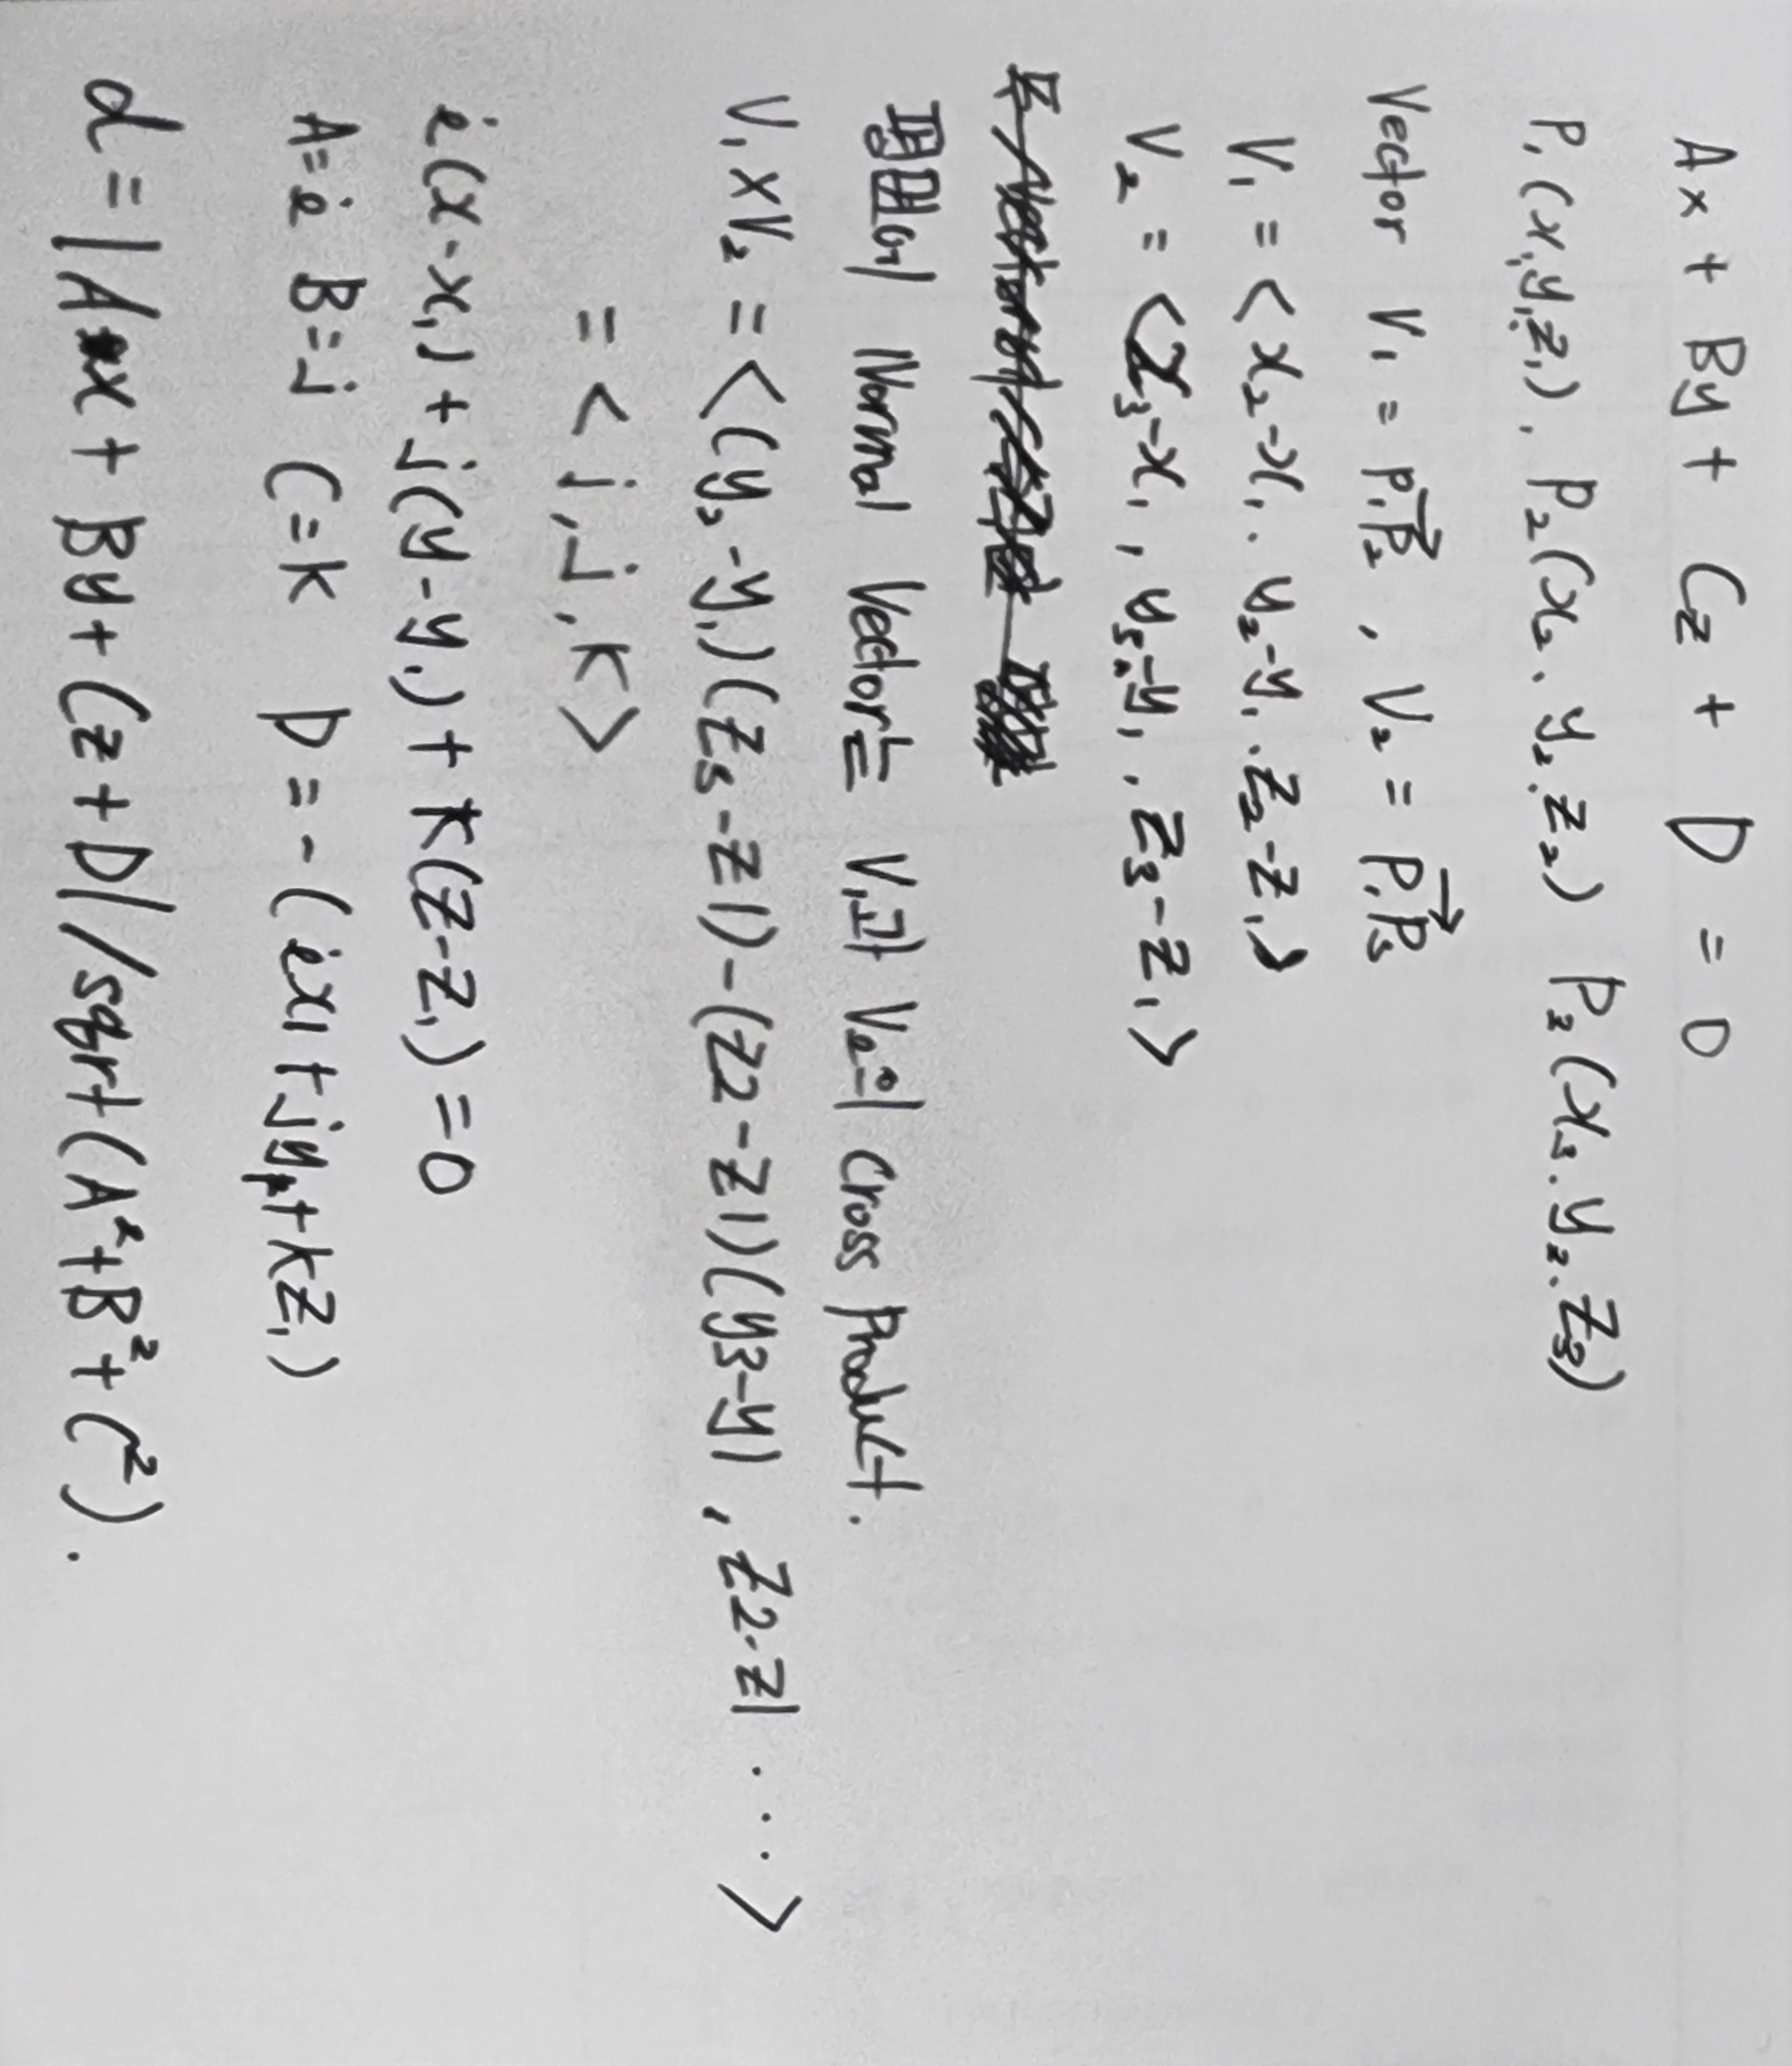 Ax + By + Cz + D = 0
P₁(x₁,y₁,z₁), P₂(x₂, y₂, z₂) P₃(x₃, y₃, z₃)
Vector V₁ = P₁P₂, V₂ = P₁P₃
V₁ = <x₂-x₁, y₂-y₁, z₂-z₁>
V₂ = <x₃-x₁, y₃-y₁, z₃-z₁>
평면에 Normal Vector는 V₁과 V₂의 Cross Product.
V₁×V₂ = <(y₂-y₁)(z₃-z1)-(z2-z1)(y3-y1, z2-z1 ...>
= <i, j, k>
i(x-x₁)+j(y-y₁)+k(z-z₁)=0
A=i B=j C=k D=-(ix1+jy₁+kz₁)
d=|Ax+By+Cz+D|/sqrt(A²+B²+C²).